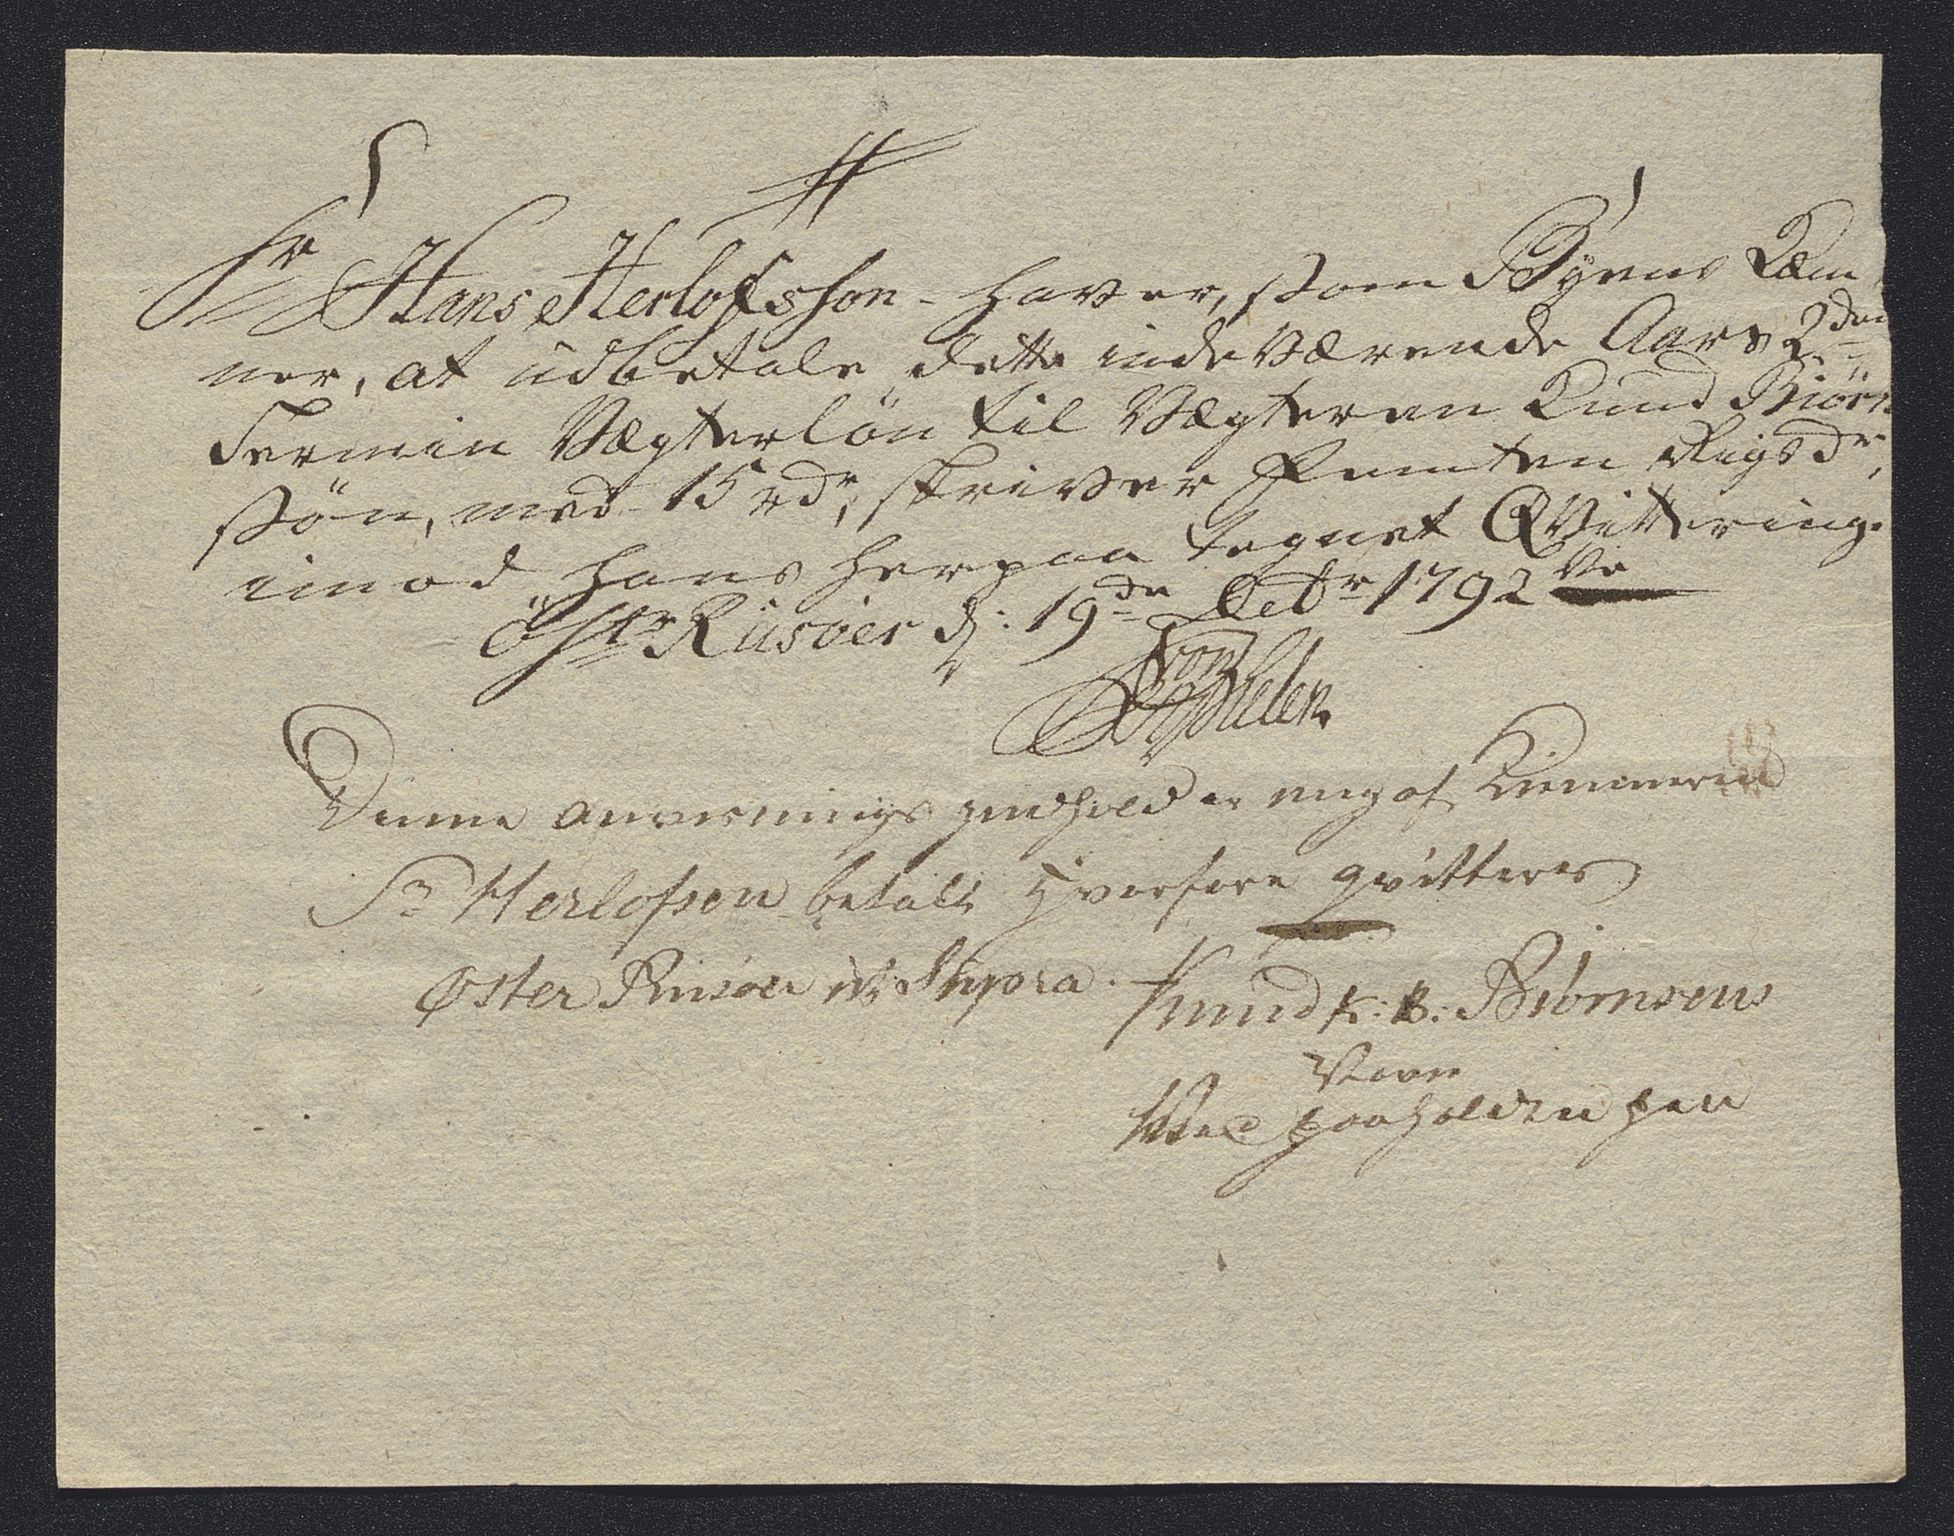 Hr Hans Herlofsson haver, som Byens Kæm
ner, at udbetale dette indeværende Aars 2den
Termin Vægterløn til Vægteren Knud Biørn
søn, med 15 rdr, skriver Femten Rigsdr,
imod hans herpaa tegnet Qvittering.
Östr Riisöer d: 19de Octbr 1792
von
Denne anvisnings indhold er mig af Kiemneren
Sr Herlofsen betalt hvorfore qvitteres
Øster Riisøer ut Supra. Knud K: B: Biörnsen
Navn
Med paaholden pen